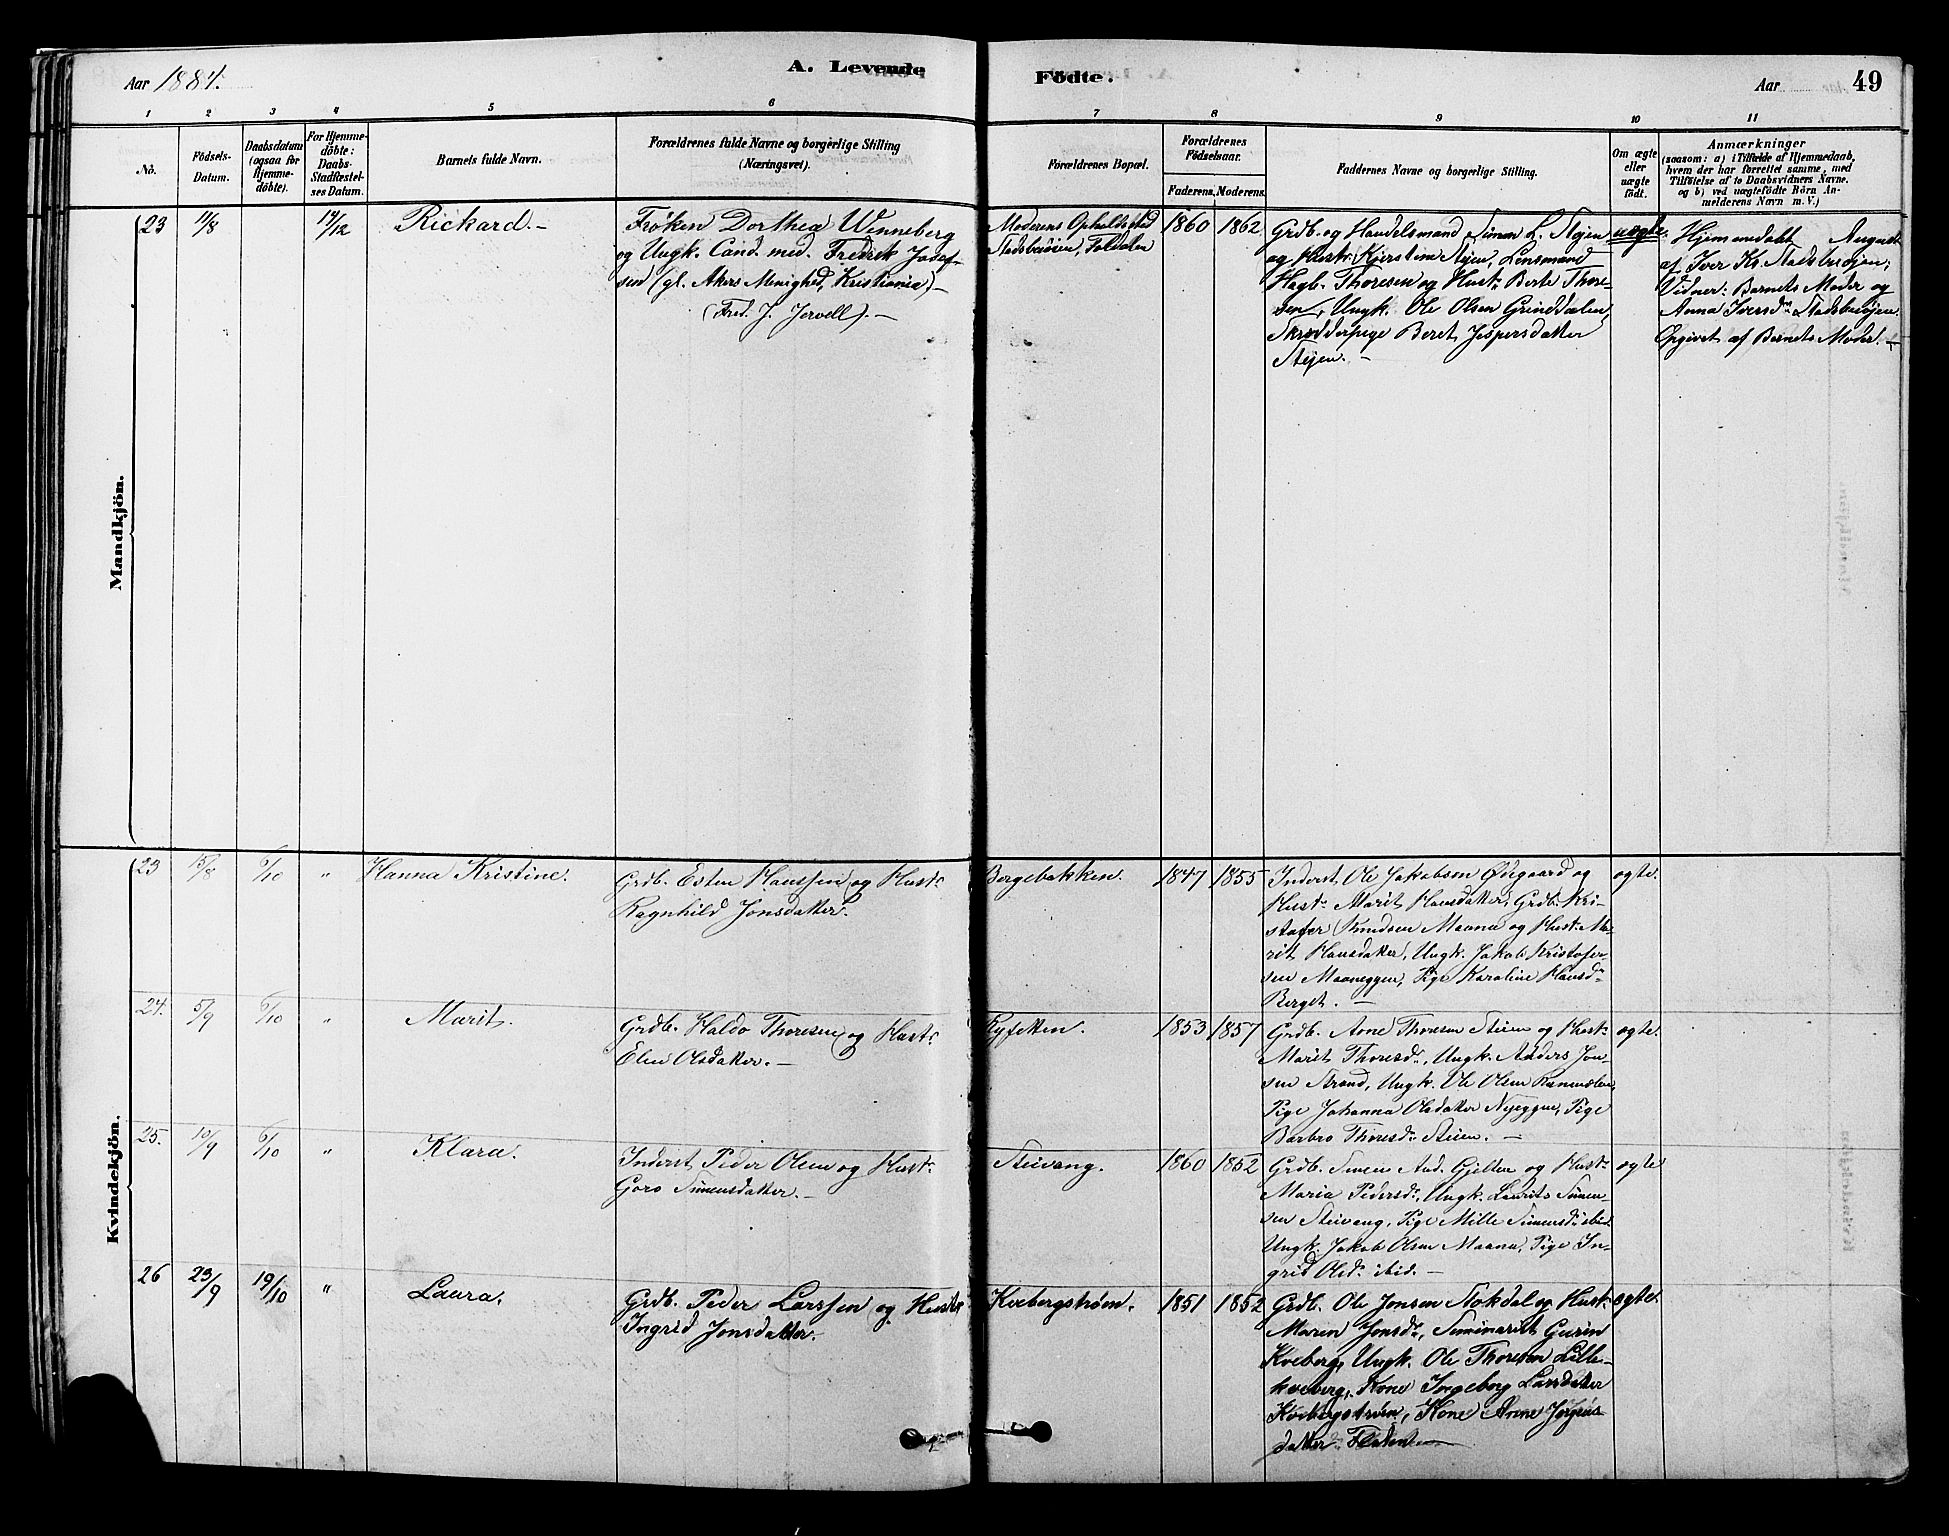 Aar 1884.
A. Levende
Födte.
Aar
49
1 2 3 4 5 6 7 8 9 10 11
No.
Födsels-
Datum.
Daabsdatum
(ogsaa for
Hjemme-
döbte).
For Hjemme-
döbte:
Daabs-
Stadfæstel-
ses Datum.
Barnets fulde Navn.
Forældrenes fulde Navne og borgerlige Stilling
(Næringsvei).
Forældrenes Bopæl.
Forældrenes
Födselsaar.
Faderens.
Moderens.
Faddernes Navne og borgerlige Stilling.
Om ægte
eller
uægte
födt.
Anmærkninger
(saasom: a) i Tilfælde af Hjemmedaab,
hvem der har forrettet samme, med
Tilföielse af to Daabsvidners Navne.
og b) ved uægtefödte Börn An-
melderens Navn m. V.)
Mandkjön.
23
11/8
14/12
Rickard.-
Frøken Dorthea Winneberg
og Ungk. Cand. med. Fredrik Josef-
sen (gl. Akers Menighed, Kristiania)-
(Fred. J. Jervell).-
Moderens Opholdssted
Stadsbuøien, Foldalen
1860
1862
Grdb. og Handelsmand Simen L. Steien
og Hustr. Kjerstine Steien, Lensmand
Hagb. Thoresen og Hust. Berte Thore-
sen, Ungk. Ole Olsen Grinddalen,
Skrædderpige Beret Jespersdatter
Steien.-
uægte.
Hjemmedøbt August
af Iver Kr. Stadsbuøjen;
Vidner: Barnets Moder og
Anna Iversdr Stadsbuøjen.
Opgivet af Barnets Moder.-
Kvindekjön.
23
15/8
6/10
"
Hanna Kristine.
Grdb. Esten Hanssen og Hustr
Ragnhild Jonsdatter.
Bergebakken.
1847
1855
Inderst Ole Jakobsen Øiegaard og
Hustr Marit Hansdatter, Grdb. Kri-
stofer Knudsen Moana og Hust. Ma-
rit Hansdatter, Ungk. Jakob Kristofer-
sen Moaneggen, Pige Karoline Hansdr
Berget.-
ægte.
24.
5/9
6/10
"
Marit.
Grdb. Haldo Thoresen og Hustr
Elen Olsdatter.-
Ryfetten.
1853
1857
Grdb. Arne Thoresen Steien og Hustr
Marit Thoresdr, Ungk. Anders Jon-
sen Strand, Ungk. Ole Olsen
Pige Johanna Olsdatter Nyeggen, Pige
Barbro Thoresdr Steien.-
ægte.
25.
10/9
6/10
"
Klara.
Inderst Peder Olsen og Hustr
Goro Simensdatter.-
Steivang.
1860
1852
Grdb. Simen And. Gjelten og Hustr
Maria Pedersdr, Ungk. Laurits Simen-
sen Steivang, Pige Mille Simensdr ibid.
Ungk. Jakob Olsen Moana, Pige In-
grid Olsdr ibid.-
ægte
26
23/9
19/10
"
Laura.
Grdb. Peder Larssen og Hustr
Ingrid Jonsdatter.
Kvebergstrøm.
1851
1852
Grdb. Ole Jonsen Stokdal og Hust.
Maren Jonsdr, Seminarist
Kveberg, Ungk. Ole Thoresen Lille-
kveberg, Kone Ingeborg Larsdatter
Kvebergstrøm, Kone Anne Jørgens-
datter
ægte.